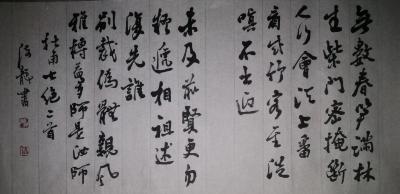 無數春笋满林
生柴門密掩斷
人行會須上番
看成竹客至從
嗔不出迎
未及前賢更勿
疑遞相祖述
復先誰
别裁偽體親風
雅轉益多師是汝師
杜甫七绝二首